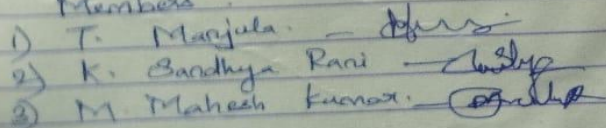 Members
1) T. Manjula. -
2) K. Sandhya Rani -
3) M. Mahesh Kumar. -